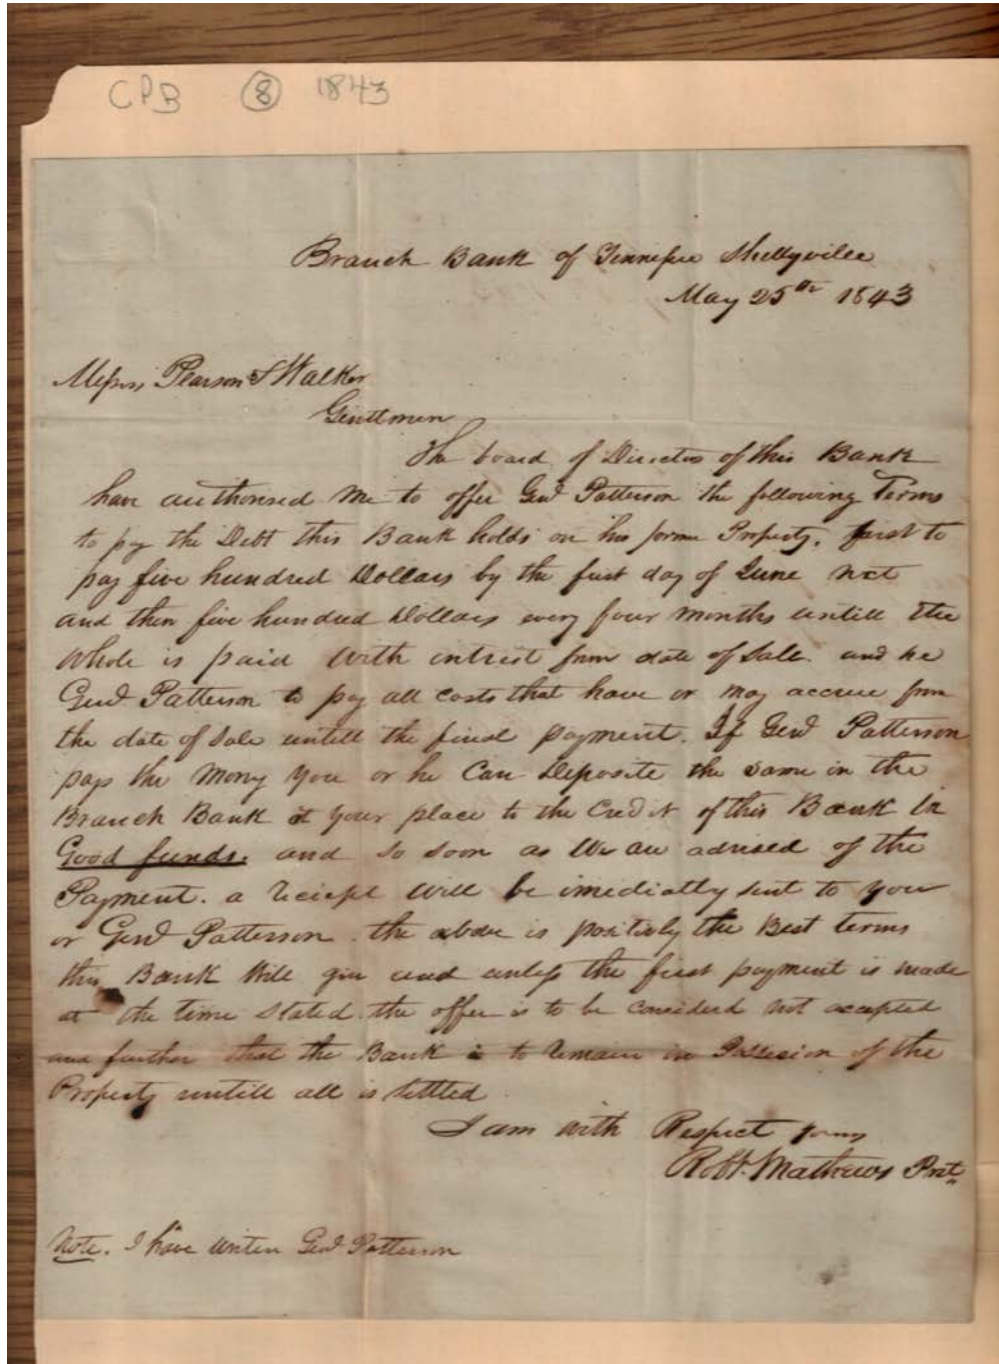 CPB 8 1843
Branch Bank of Tennessee Shelbyville
May 25th 1843
Messrs Pearson & Walker
Gentlmen
The board of Directos of this Bank
have authorised me to offer Genl Patterson the following Terms
to pay the Debt this Bank holds on his former Property. first to
pay five hundred Dollars by the first day of June next
and then five hundred Dollars every four months untill the
whole is paid with intrest from date of Sale. and he
Genl Patterson to pay all costs that have or may accrue from
the date of Sale untill the final payment. If Genl Patterson
pays the Money you or he Can Deposite the same in the
Branch Bank at your place to the Credit of this Bank in
Good funds. and so soon as We are advised of the
Payment. a reciept will be imediatly sent to you
or Genl Patterson. the above is positivly the Best terms
this Bank Will give and unless the first payment is made
at the time Stated the offer is to be considerd not accepted
and further that the Bank is to remain in Possesion of the
Property untill all is settled
I am with Respect yours
Robt. Mathews Prst
Note. I have writen Genl Patterson